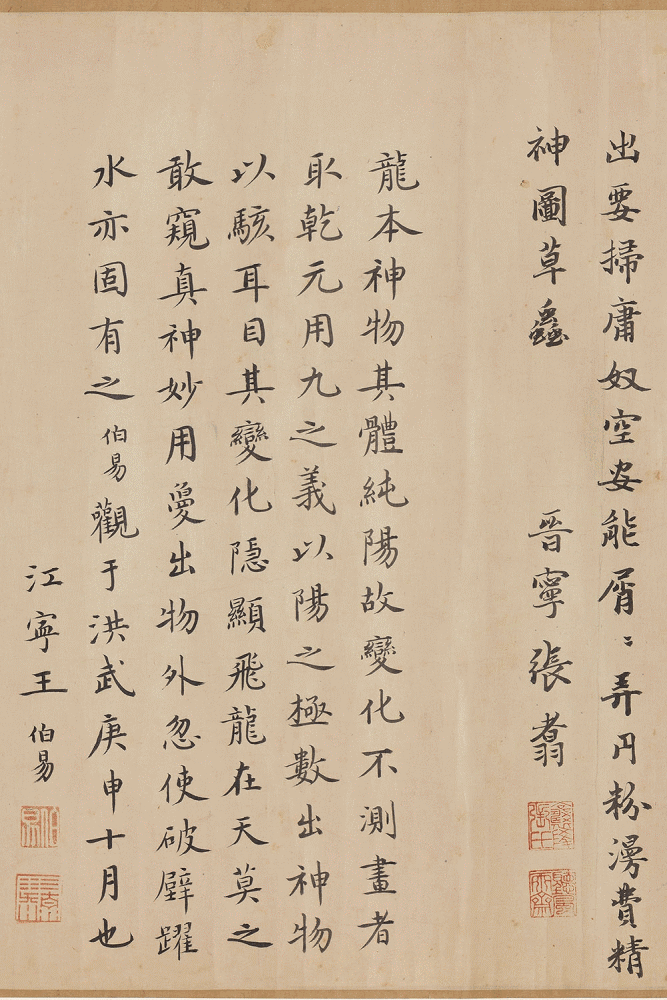 出要掃庸奴空安能屑〻弄丹粉漫費精
神圖草蟲 晉寧張翥
龍本神物其體純陽故變化不測畫者
取乾元用九之義以陽之極數出神物
以駭耳目其變化隱顯飛龍在天莫之
敢窺真神妙用夐出物外忽使破壁躍
水亦固有之伯易觀于洪武庚申十月也
江寧王伯易